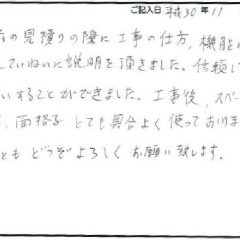 ご記入日 平成30年11
前の見積りの際に工事の仕方、機能に
ていねいに説明を頂きました。信頼し
いすることができました。工事後、スペー
面格子とても具合よく使っておりま
とも どうぞよろしくお願い致します。